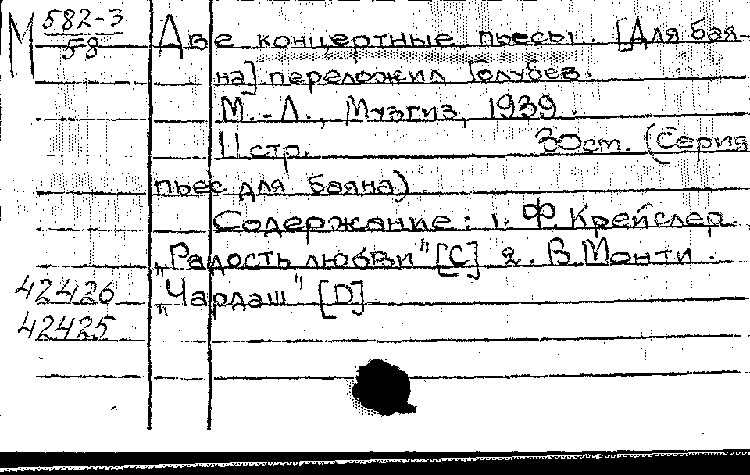 М 582-3
58
Две концертные пьесы. [Для бая-
на] переложил Голубев.
М.-Л., Музгиз, 1939.
11 стр. 30 см. (Серия
пьес для баяна)
Содержание: 1. Ф. Крейслер
„Радость любви" [C] 2. В. Монти.
42426 „Чардаш" [D]
42425